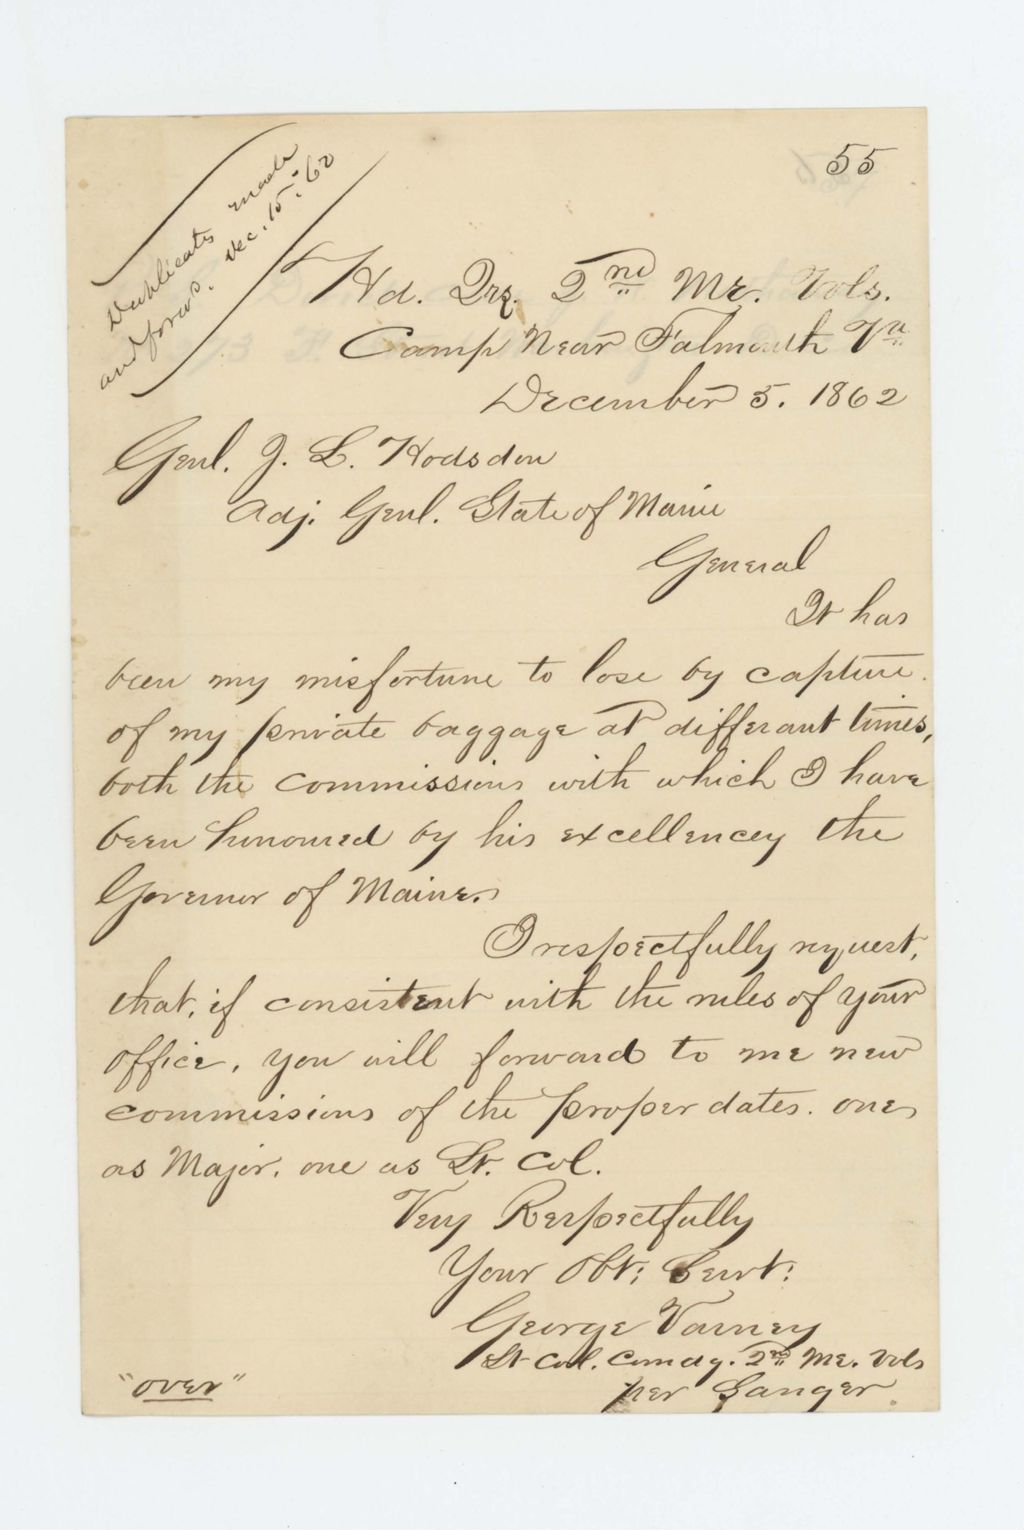 55
Duplicates made
and forw'd. Dec. 15. 62
Hd. Qrs. 2nd Me. Vols.
Camp Near Falmouth Va
December 5. 1862
Genl. J. L. Hodsdon
Adj. Genl. State of Maine
General
It has
been my misfortune to lose by capture
of my private baggage at differant times,
both the commissions with which I have
been honoured by his excellencey the
Governor of Maine.
I respectfully request,
that, if consistent with the rules of your
office, you will forward to me new
commissions of the proper dates. one
as Major. one as Lt. Col.
Very Respectfully
Your Obt: Servt:
George Varney
Lt Col. Comdg. 2nd Me. Vols
per Sanger
"over"